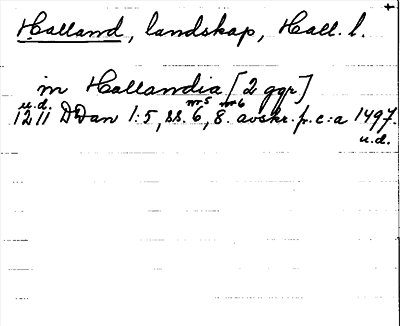 Halland, landskap, Hall. l.
in Hallandia [2 ggr]
u.d. nr 5 nr 6
1211 DDan 1:5, ss. 6, 8. avskr. p. c:a 1497.
u.d.